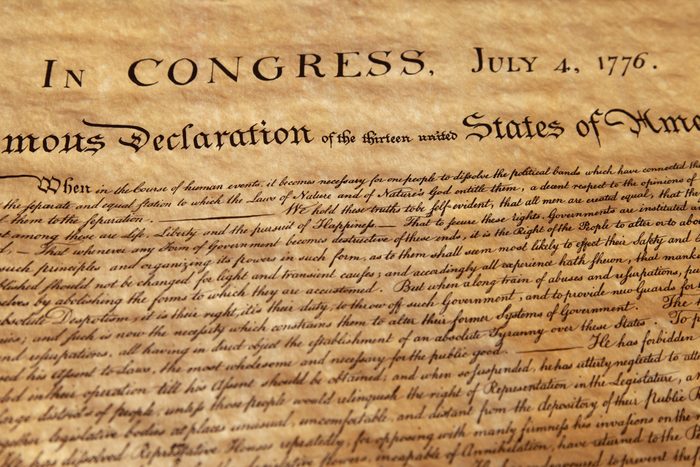 IN CONGRESS, JULY 4, 1776.
mous Declaration of the thirteen united States of Ame
When in the Course of human events, it becomes necessary for one people to dissolve the political bands which have connected th
the separate and equal station to which the Laws of Nature and of Nature's God entitle them, a decent respect to the opinions of
l them to the separation. We hold these truths to be self-evident, that all men are created equal, that the
t among these are Life, Liberty and the pursuit of Happiness. — That to secure these rights, Governments are instituted
d. — That whenever any Form of Government becomes destructive of these ends, it is the Right of the People to alter or to abol
such principles and organizing its powers in such form, as to them shall seem most likely to effect their Safety and
blished should not be changed for light and transient causes; and accordingly all experience hath shewn, that mank
selves by abolishing the forms to which they are accustomed. But when a long train of abuses and usurpations, pu
absolute Despotism, it is their right, it is their duty, to throw off such Government, and to provide new Guards for
ies; and such is now the necessity which constrains them to alter their former Systems of Government. The
and usurpations, all having in direct object the establishment of an absolute Tyranny over these States. To p
sed his Assent to Laws, the most wholesome and necessary for the public good. He has forbidden
ded in their operation till his Assent should be obtained; and when so suspended, he has utterly neglected to atte
large districts of people, unless those people would relinquish the right of Representation in the Legislature, a
gether legislative bodies at places unusual, uncomfortable, and distant from the depository of their Public R
has dissolved Representative Houses repeatedly, for opposing with manly firmness his invasions on the
Legislative powers, incapable of Annihilation, have returned to the
to prevent the